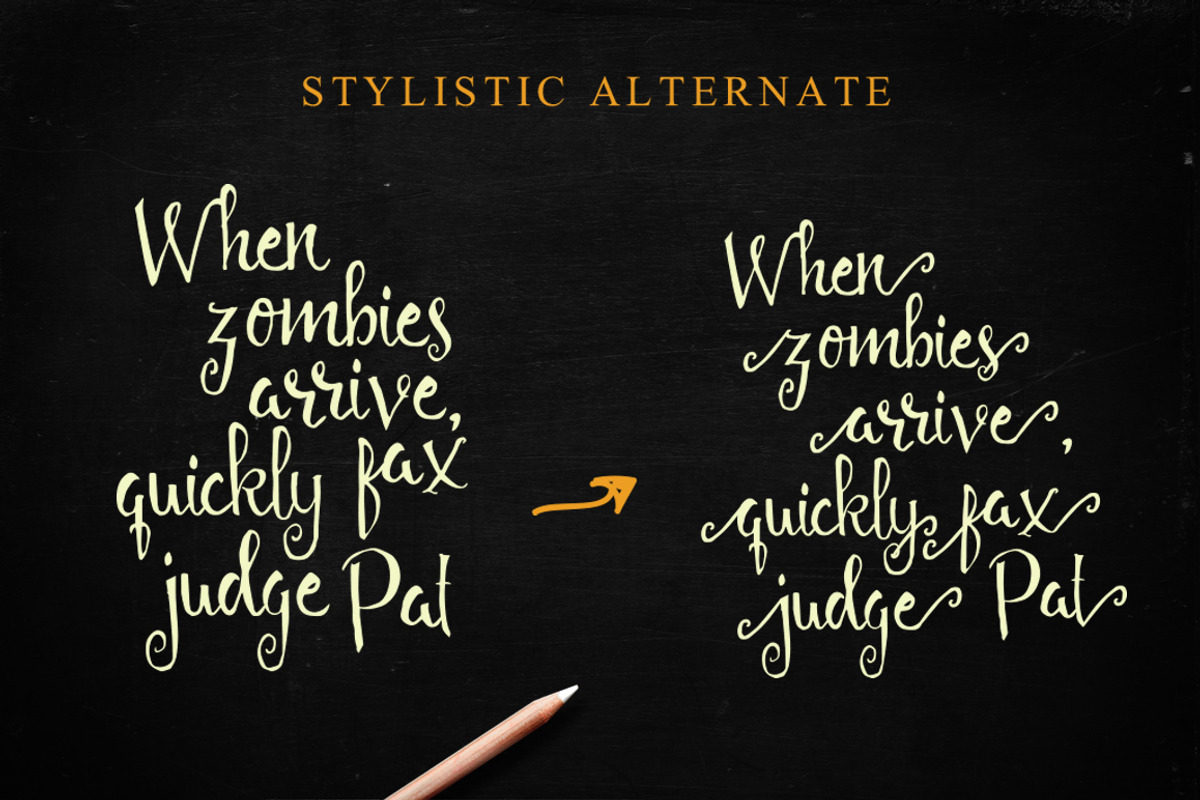 STYLISTIC ALTERNATE
When
zombies
arrive,
quickly fax
judge Pat
When
zombies
arrive,
quickly fax
judge Pat